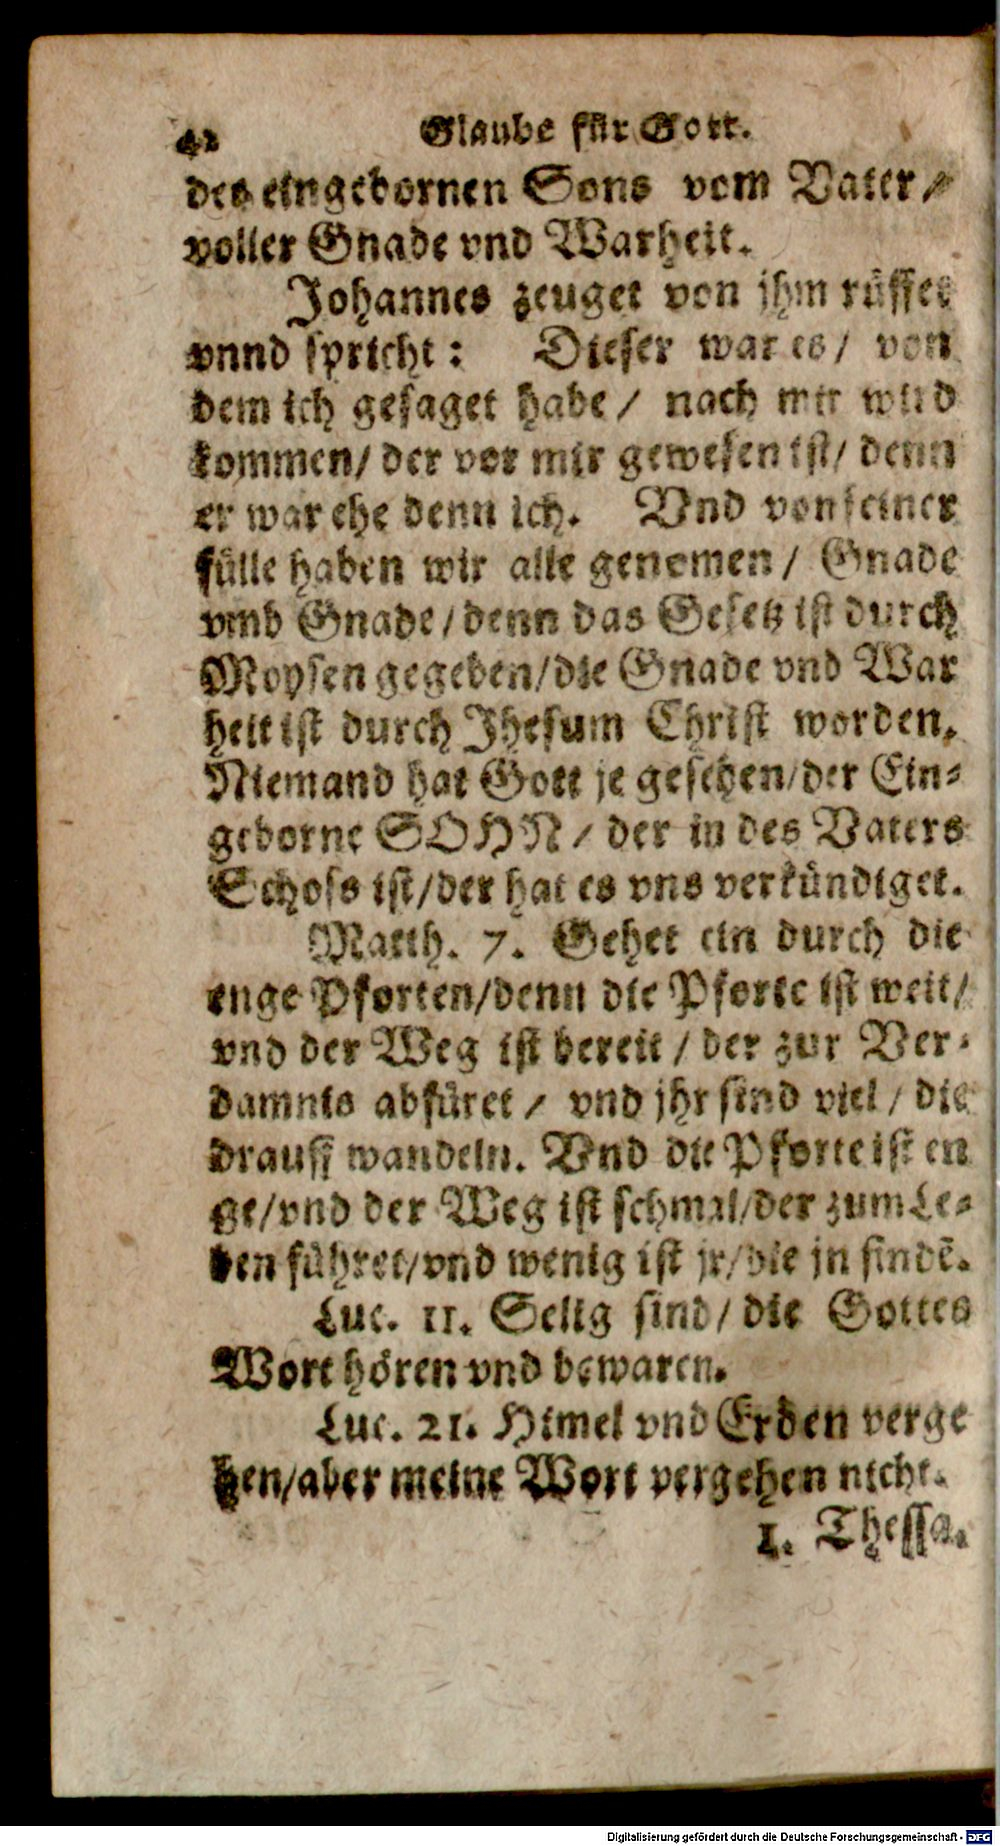 42 Glaube für Gott.
des eingebornen Sons vom Vater /
voller Gnade vnd Warheit.
Johannes zeuget von jhm rüffet
vnnd spricht: Dieser war es / von
dem ich gesaget habe / nach mir wird
kommen / der vor mir gewesen ist / denn
er war ehe denn ich. Vnd von seiner
fülle haben wir alle genomen / Gnade
vmb Gnade / denn das Gesetz ist durch
Moysen gegeben / die Gnade vnd War
heit ist durch Jhesum Christ worden.
Niemand hat Gott je gesehen / der Ein-
geborne SOHN / der in des Vaters
Schoss ist / der hat es vns verkündiget.
Matth. 7. Gehet ein durch die
enge Pforten / denn die Pforte ist weit /
vnd der Weg ist bereit / der zur Ver-
damnis abfüret / vnd jhr sind viel / die
drauff wandeln. Vnd die Pforte ist en
ge / vnd der Weg ist schmal / der zum Le-
ben führet / vnd wenig ist jr / die jn findē.
Luc. 11. Selig sind / die Gottes
Wort hören vnd bewaren.
Luc. 21. Himel vnd Erden verge
hen / aber meine Wort vergehen nicht.
1. Thessa.
Digitalisierung gefördert durch die Deutsche Forschungsgemeinschaft - DFG